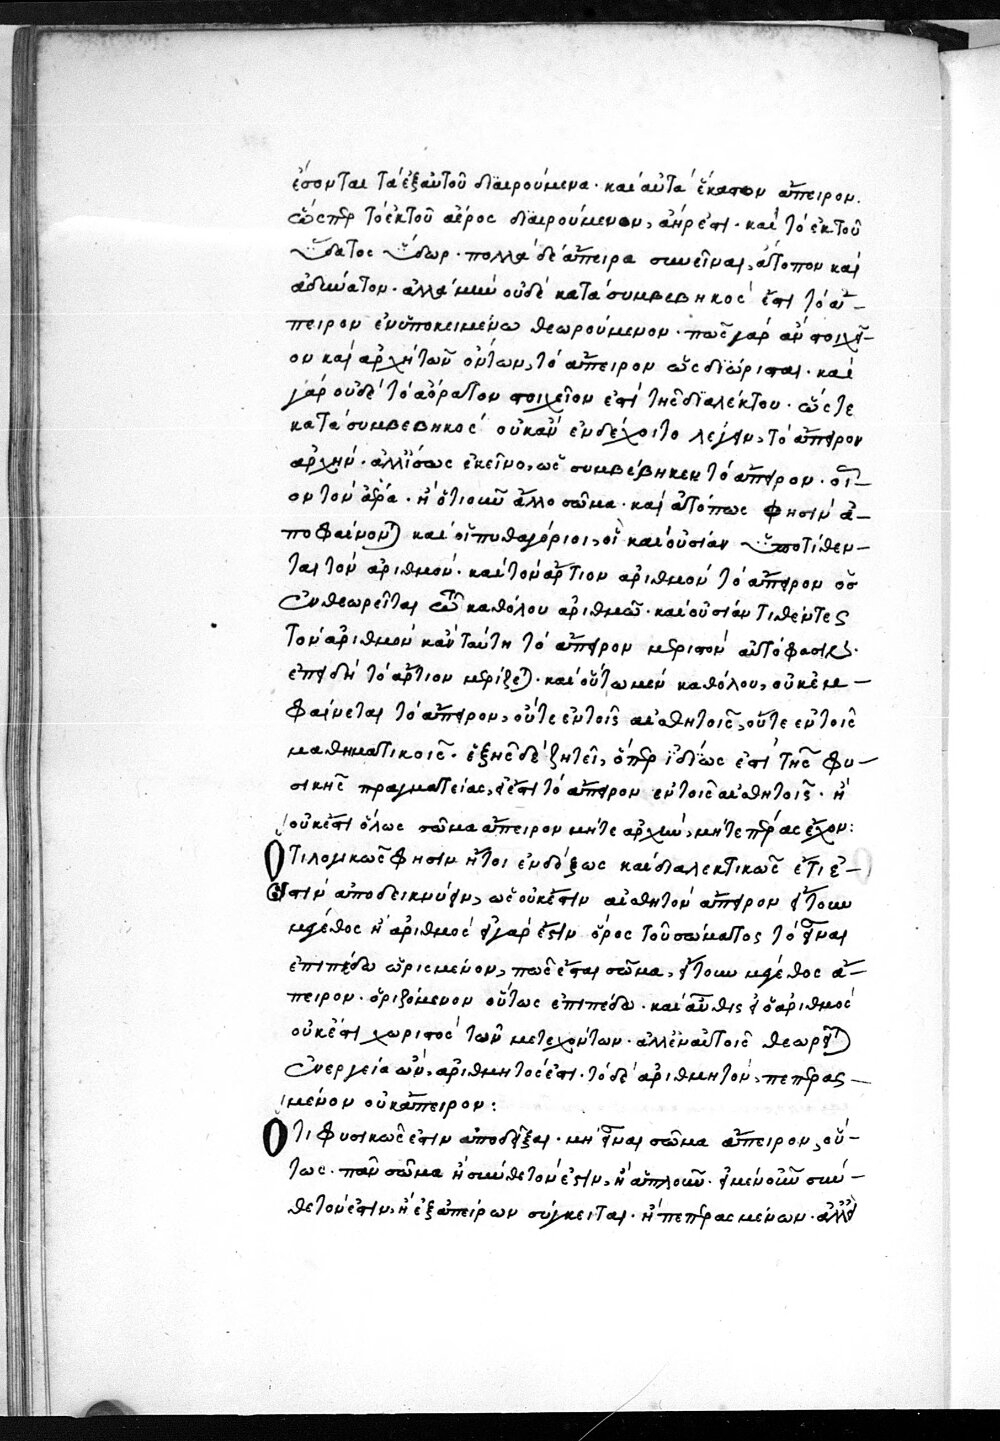 ἔσονται τὰ ἐξ αὐτοῦ διαιρούμενα· καὶ αὐτὰ ἕκαστον ἄπειρον.
ὥσπερ τὸ ἐκ τοῦ ἀέρος διαιρούμενον, ἀήρ ἐστι· καὶ τὸ ἐκ τοῦ
ὕδατος ὕδωρ· πολλὰ δὲ ἄπειρα συνεῖναι, ἄτοπον καὶ
ἀδύνατον· ἀλλὰ μὴν οὐδὲ κατὰ συμβεβηκός ἐστι τὸ ἄ–
πειρον ἐν ὑποκειμένω θεωρούμενον· πῶς γὰρ ἂν στοιχεῖ–
ον καὶ ἀρχὴ τῶν ὄντων, τὸ ἄπειρον ὡς διώρισται· καὶ
γὰρ οὐδὲ τὸ ἀόρατον στοιχεῖον ἐστὶ τῆς διαλέκτου· ὥστε
κατὰ συμβεβηκὸς οὐκ ἂν ἐνδέχοιτο λέγειν, τὸ ἄπειρον
ἀρχήν· ἀλλ' ἴσως ἐκεῖνο, ὡς συμβέβηκεν τὸ ἄπειρον· οἷ–
ον τὸν ἀέρα· ἢ ὁτιοῦν ἄλλο σῶμα· καὶ ἀτόπως φησὶν ἀ–
ποφαίνονται καὶ οἱ πυθαγόριοι, οἳ καὶ οὐσίαν ὑποτίθεν–
ται τὸν ἀριθμόν· καὶ τὸν ἄρτιον ἀριθμὸν τὸ ἄπειρον ὃς
ἐνθεωρεῖται τῶ καθόλου ἀριθμῶ· καὶ οὐσίαν τιθέντες
τὸν ἀριθμὸν κἂν ταύτη τὸ ἄπειρον μεριστὸν αὐτὸ φασὶ·
ἐπειδὴ τὸ ἄρτιον μερίζεται· καὶ οὕτω μὲν καθόλου, οὐκ ἐμ–
φαίνεται τὸ ἄπειρον, οὔτε ἐν τοῖς αἰσθητοῖς, οὔτε ἐν τοῖς
μαθηματικοῖς· ἑξῆς δὲ ζητεῖ, ὅπερ ἰδίως ἐστὶ τῆς φυ–
σικῆς πραγματείας, εἰ ἔστι τὸ ἄπειρον ἐν τοῖς αἰσθητοῖς· ἢ
οὐκ ἔστι ὅλως σῶμα ἄπειρον μήτε ἀρχὴν, μήτε πέρας ἔχον:
Ὅτι λογικῶς φησὶν ἤτοι ἐνδόξως καὶ διαλεκτικῶς ἔτι ἐ–
στὶν ἀποδεικνύειν, ὡς οὐκ ἔστιν αἰσθητὸν ἄπειρον εἴτουν
μέγεθος ἢ ἀριθμὸς εἰ γάρ ἐστιν ὅρος τοῦ σώματος τὸ εἶναι
ἐπιπέδω ὡρισμένον, πῶς ἔσται σῶμα, εἴτουν μέγεθος ἄ–
πειρον· ὁριζόμενον οὕτως ἐπιπέδω· καὶ αὖθις εἰ ὁ ἀριθμὸς
οὐκ ἔστι χωριστὸς τῶν μετεχόντων· ἀλλ' ἐν αὐτοῖς θεωρεῖται
ἐνεργεία ὢν, ἀριθμητός ἐστι· τὸ δὲ ἀριθμητὸν, πεπερασ–
μένον οὐκ ἄπειρον:
Ὅτι φυσικῶς ἐστὶν ἀποδεῖξαι· μὴ εἶναι σῶμα ἄπειρον, οὕ–
τως· πᾶν σῶμα ἢ σύνθετόν ἐστιν, ἢ ἁπλοῦν· εἰ μὲν οὖν σύν–
θετόν ἐστιν, ἢ ἐξ ἀπείρων σύγκειται· ἢ πεπερασμένων· ἀλλ' εἰ